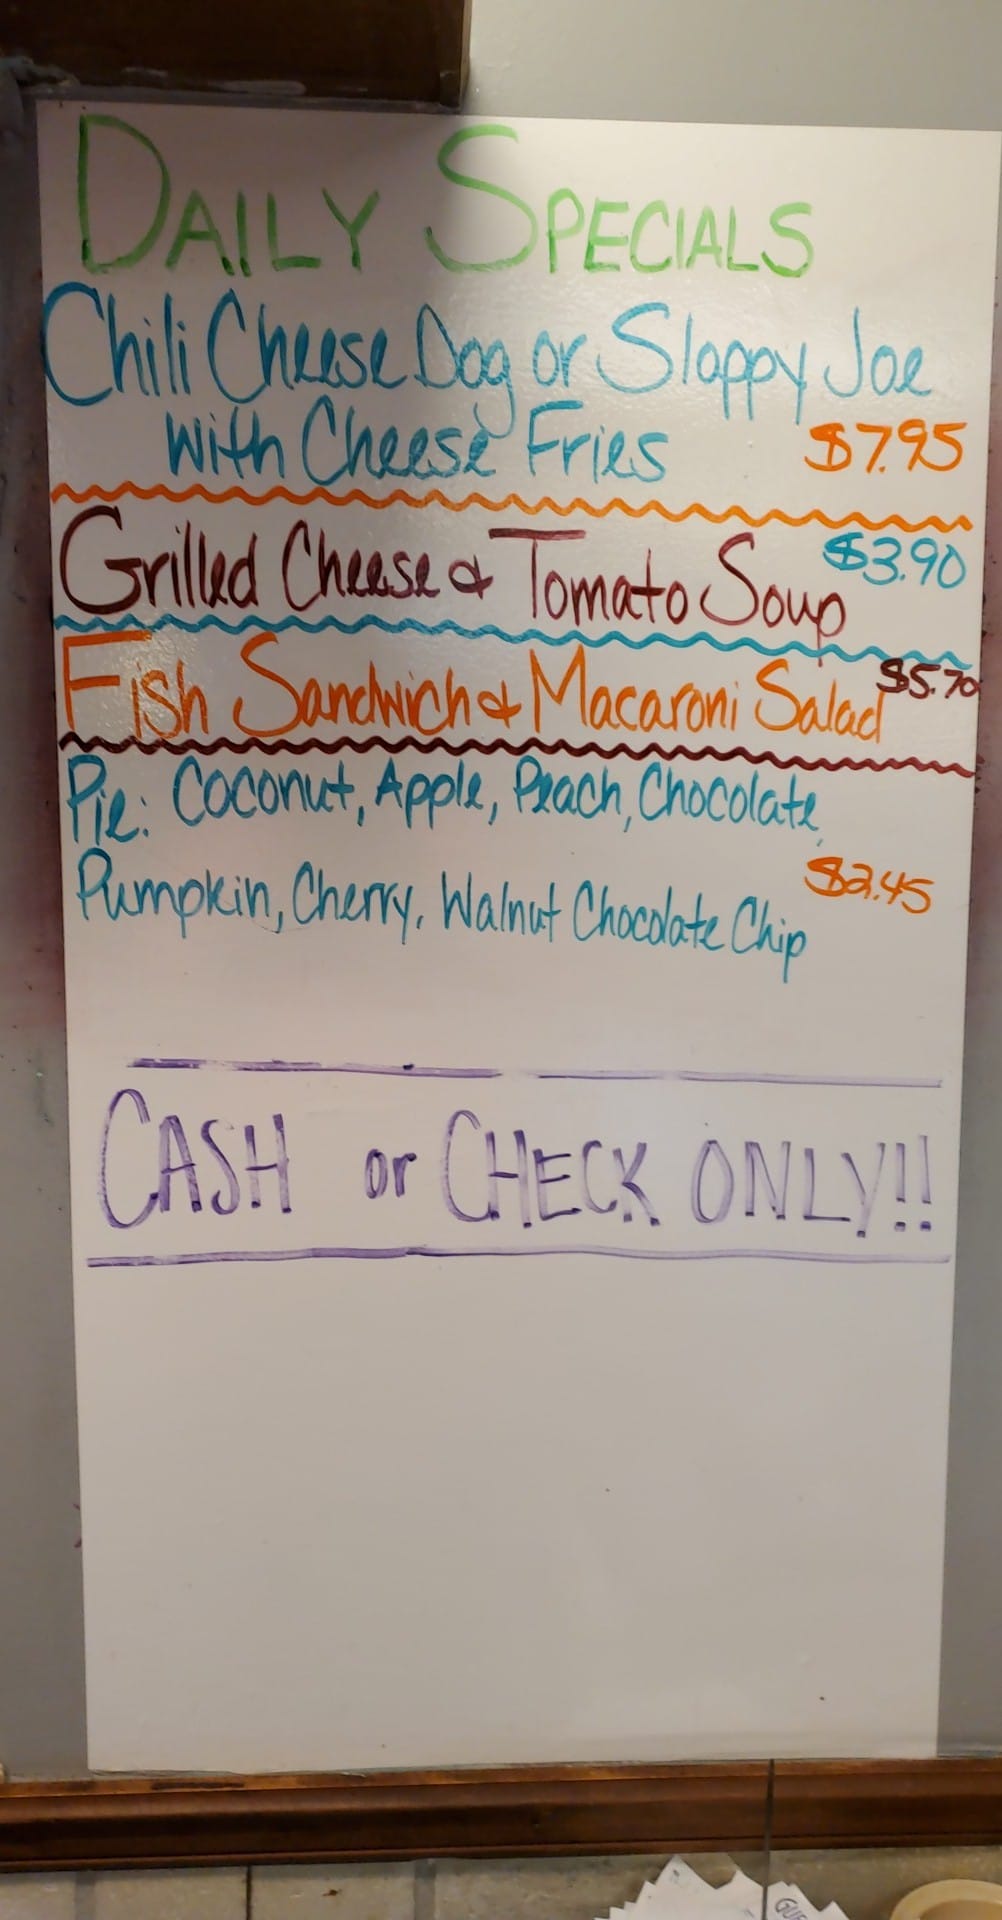 DAILY SPECIALS
Chili Cheese Dog or Sloppy Joe
with Cheese Fries $7.95
Grilled Cheese & Tomato Soup $3.90
Fish Sandwich & Macaroni Salad $5.70
Pie: Coconut, Apple, Peach, Chocolate,
Pumpkin, Cherry, Walnut Chocolate Chip $2.45
CASH or CHECK ONLY!!